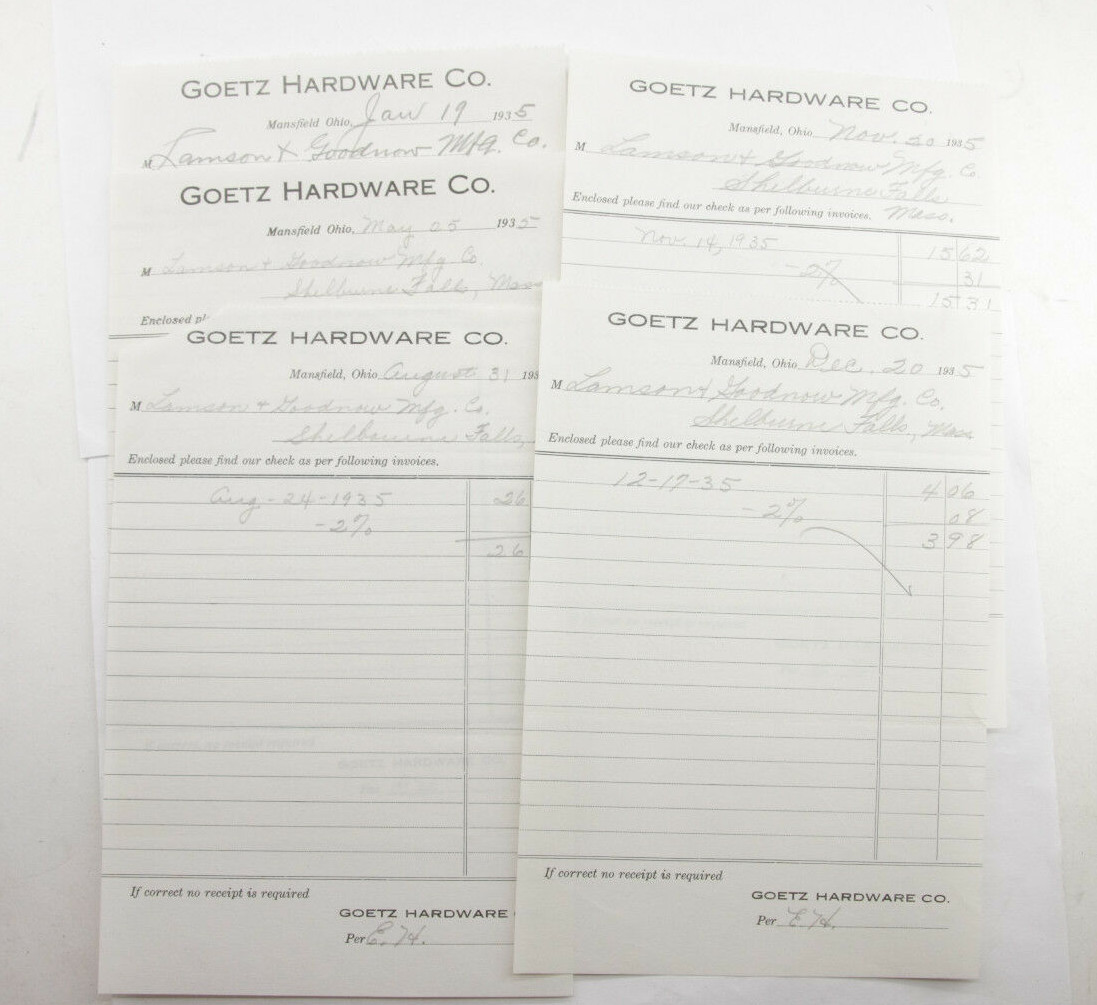 GOETZ HARDWARE CO.
Mansfield Ohio, Jan 19 1935
M Lamson & Goodnow Mfg. Co.
GOETZ HARDWARE CO.
Mansfield Ohio, May 25 1935
M Lamson & Goodnow Mfg Co.
Shelburne Falls, Mass
Enclosed pl
GOETZ HARDWARE CO.
Mansfield, Ohio August 31 193
M Lamson & Goodnow Mfg. Co.
Shelbourne Falls,
Enclosed please find our check as per following invoices.
Aug-24-1935 26
-2%
26
If correct no receipt is required
GOETZ HARDWARE
Per E. H.
GOETZ HARDWARE CO.
Mansfield, Ohio Nov. 20 1935
M Lamson & Goodnow Mfg. Co.
Shelburne Falls
Enclosed please find our check as per following invoices. Mass.
Nov. 14, 1935 15 62
-2% 31
15 31
GOETZ HARDWARE CO.
Mansfield, Ohio Dec. 20 1935
M Lamson & Goodnow Mfg. Co.
Shelburne Falls, Mass
Enclosed please find our check as per following invoices.
12-17-35 4 06
-2% 08
3 98
If correct no receipt is required
GOETZ HARDWARE CO.
Per E. H.